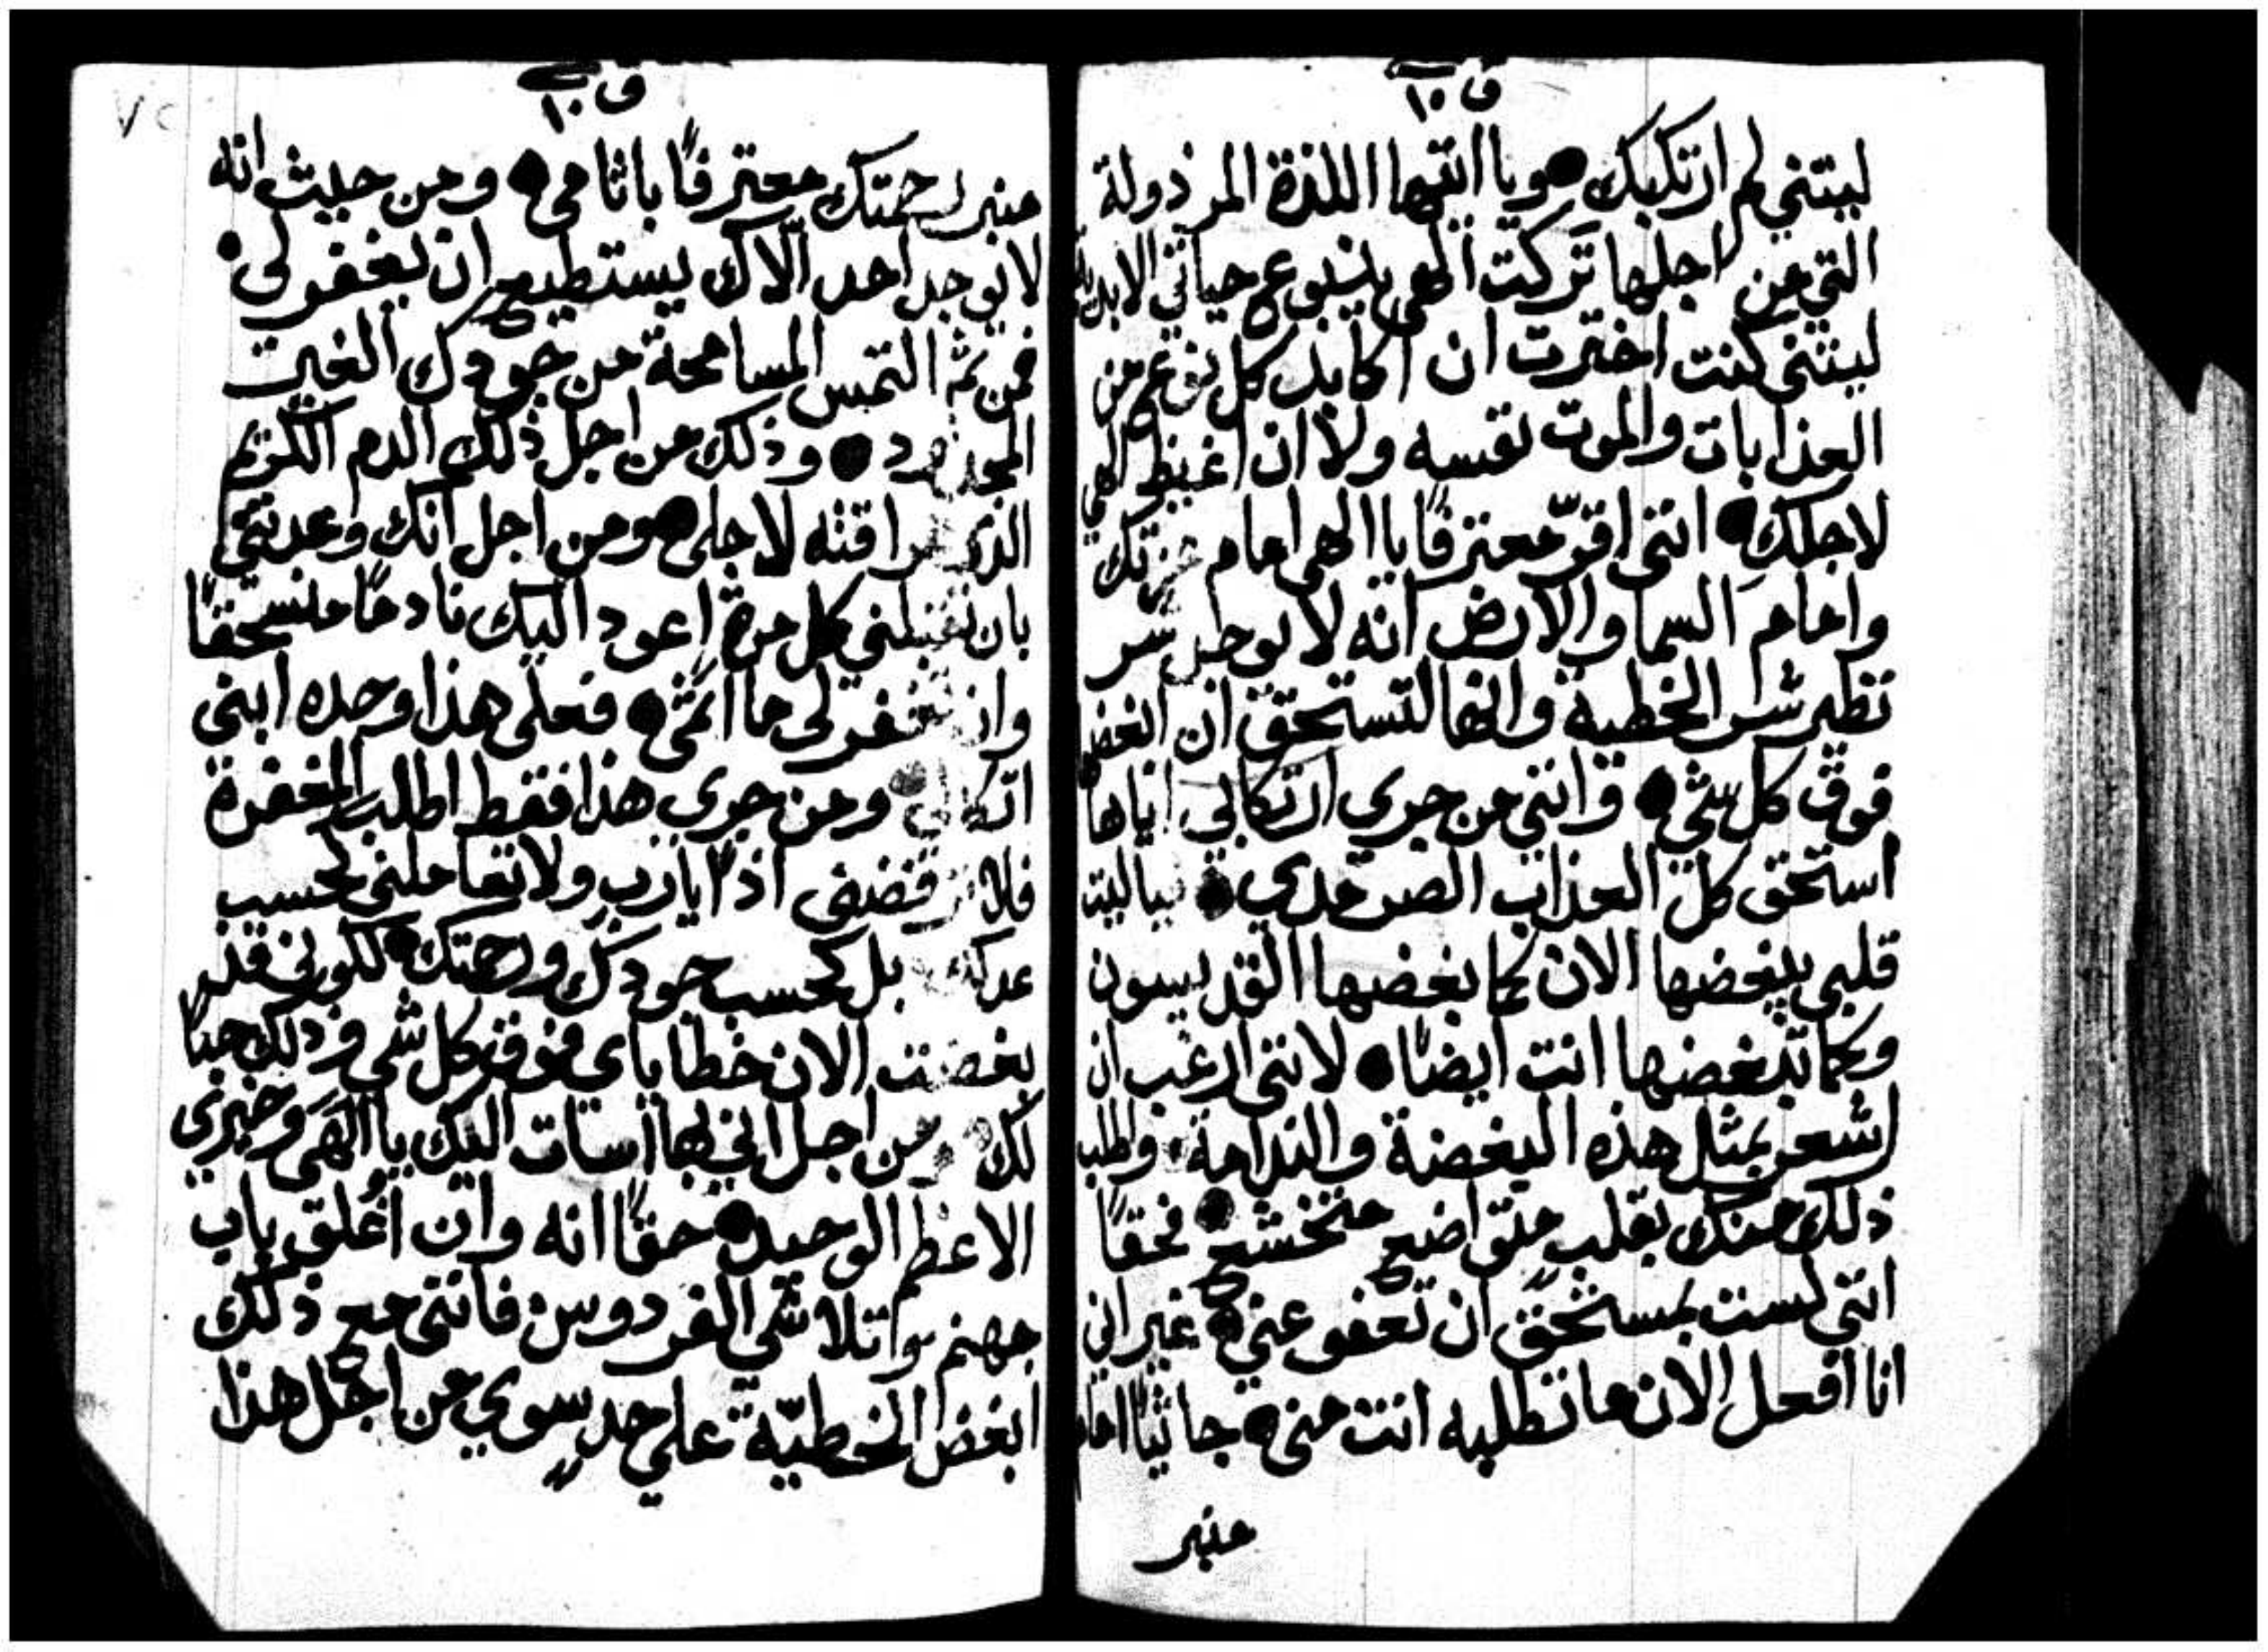 ف ١٥
ليتني لم ارتكبك • ويا ايتها اللذة المرذولة
التي من اجلها تركت الهي ينبوع حياتي
ليتني كنت اخترت ان اكابد كل نوع من
العذابات والموت نفسه ولا ان اغيظ الهي
لاجلك • انني اقرّ معترفًا يا الهي امام عزتك
وامام السما والارض انه لا يوجد شر
نظير شر الخطية وانها لتستحق ان
فوق كل شي • وانني من جري ارتكابي اياها
استحق كل العذاب الصرمدي • فياليت
قلبي يبغضها الان كما بغضها القديسون
وكما تبغضها انت ايضًا • لانني ارغب ان
اشعر بمثل هذه البغضة والندامة • واطلب
ذلك منك بقلب متواضع متخشع • فحقًا
انني لست بمستحق ان تعفو عني • غير اني
انا افعل الان ما تطلبه انت مني • جاثيًا امام
منبر
ف ١٠
٧٢
منبر رحمتك معترفًا باثامي • ومن حيث انه
لا يوجد احد الّاك يستطيع ان يغفر لي •
فمن ثم التمس المسامحة من جودك الغير
المحدود • وذلك من اجل ذلك الدم الكريم
الذي هراقته لاجلي • ومن اجل انك وعدتني
بان تقبلني كل مرة اعود اليك نادمًا منسحقًا
وان تغفر لي ما اثمي • فعلي هذا وحده ابني
اتكالي • ومن جري هذا فقط اطلب المغفرة
فلا ترفضني اذًا يارب ولا تعاملني بحسب
عدلك بل بحسب جودك ورحمتك • لكوني قد
بغضت الان خطاياي فوق كل شي وذلك حبًا
لك ومن اجل اني بها اسات اليك يا الهي وخيري
الاعظم الوحيد • حقًا انه وان اُغلق باب
جهنم واتلاشي الفردوس • فانني مع ذلك
ابغض الخطيّة علي حدٍ سوي من اجل هذا